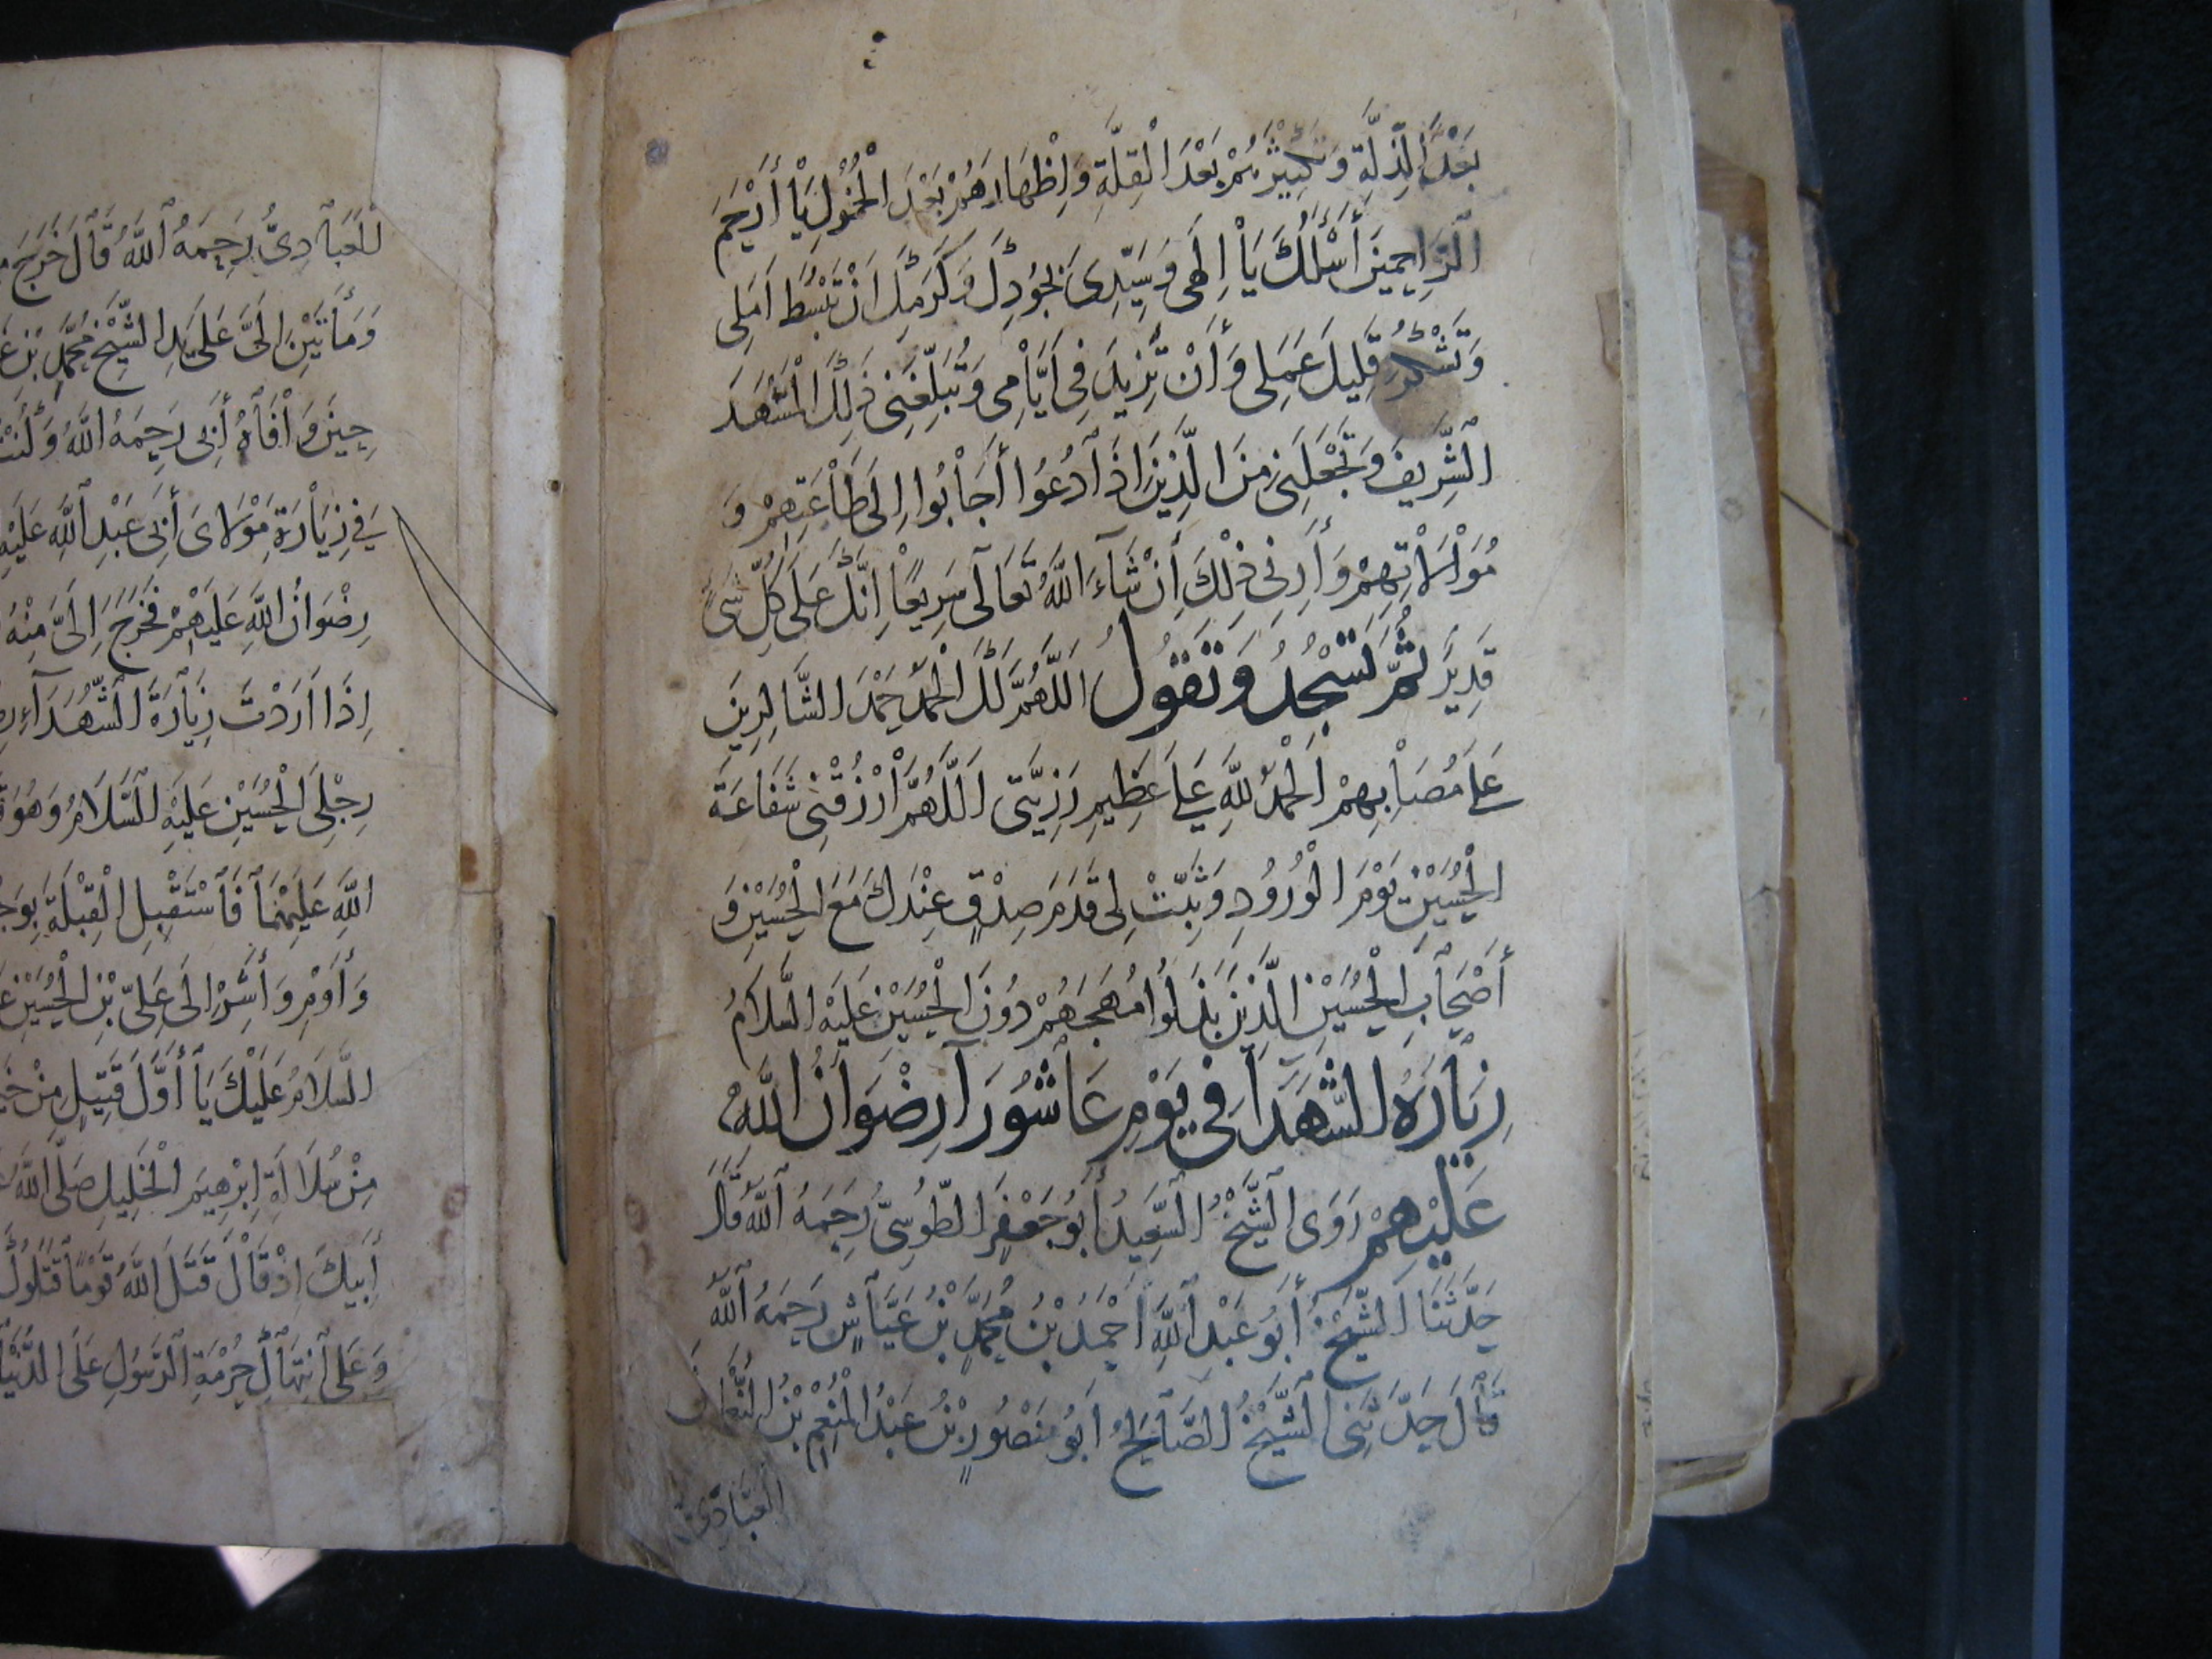 بَعْدَ الذِّلَّةِ وَتَكْثِيرِهِمْ بَعْدَ الْقِلَّةِ وَإِظْهَارِهِمْ بَعْدَ الْخُمُولِ يَا أَرْحَمَ
الرَّاحِمِينَ أَسْئَلُكَ يَا إِلَهِي وَسَيِّدِي بِجُودِكَ وَكَرَمِكَ أَنْ تَبْسُطَ أَمَلِي
وَتَشْكُرَ قَلِيلَ عَمَلِي وَأَنْ تَزِيدَ فِي أَيَّامِي وَتُبَلِّغَنِي ذَلِكَ الْمَشْهَدَ
الشَّرِيفَ وَتَجْعَلَنِي مِنَ الَّذِينَ إِذَا دُعُوا أَجَابُوا إِلَى طَاعَتِهِمْ وَ
مُوَالَاتِهِمْ وَأَرِنِي ذَلِكَ إِنْ شَآءَ اللَّهُ تَعَالَى سَرِيعًا إِنَّكَ عَلَى كُلِّ شَيْءٍ
قَدِيرٌ ثُمَّ تَسْجُدُ وَتَقُولُ اَللَّهُمَّ لَكَ الْحَمْدُ حَمْدَ الشَّاكِرِينَ
عَلَى مُصَابِهِمْ اَلْحَمْدُ لِلَّهِ عَلَى عَظِيمِ رَزِيَّتِي اَللَّهُمَّ ارْزُقْنِي شَفَاعَةَ
الْحُسَيْنِ يَوْمَ الْوُرُودِ وَثَبِّتْ لِي قَدَمَ صِدْقٍ عِنْدَكَ مَعَ الْحُسَيْنِ وَ
أَصْحَابِ الْحُسَيْنِ الَّذِينَ بَذَلُوا مُهَجَهُمْ دُونَ الْحُسَيْنِ عَلَيْهِ السَّلَامُ
زِيَارَةُ الشُّهَدَآءِ فِي يَوْمِ عَاشُورَآ رِضْوَانُ اللَّهِ
عَلَيْهِمْ رَوَى الشَّيْخُ السَّعِيدُ أَبُو جَعْفَرٍ الطُّوسِيُّ رَحِمَهُ اللَّهُ قَالَ
حَدَّثَنَا الشَّيْخُ أَبُو عَبْدِ اللَّهِ أَحْمَدُ بْنُ مُحَمَّدِ بْنِ عَيَّاشٍ رَحِمَهُ اللَّهُ
قَالَ حَدَّثَنِي الشَّيْخُ الصَّالِحُ أَبُو مَنْصُورِ بْنُ عَبْدُ الْمُنْعِمِ بْنُ النُّعْمَانِ
الْعَبَّادِيُّ
الْعَبَادِيُّ رَحِمَهُ اللَّهُ قَالَ خَرَجَ
وَمِأَتَيْنِ إِلَيَّ عَلَى يَدِ الشَّيْخِ مُحَمَّدِ بْنِ
حِينَ وَفَاةِ أَبِي رَحِمَهُ اللَّهُ وَكُنْتُ
فِي زِيَارَةِ مَوْلَايَ أَبِي عَبْدِ اللَّهِ عَلَيْهِ
رِضْوَانُ اللَّهِ عَلَيْهِمْ فَخَرَجَ إِلَيَّ مِنْهُ
إِذَا أَرَدْتَ زِيَارَةَ الشُّهَدَآءِ
رِجْلَيِ الْحُسَيْنِ عَلَيْهِ السَّلَامُ وَهُوَ
اللَّهِ عَلَيْهِمَا فَاسْتَقْبِلِ الْقِبْلَةَ
وَأَوْمِ وَأَشِرْ إِلَى عَلِيِّ بْنِ الْحُسَيْنِ
السَّلَامُ عَلَيْكَ يَا أَوَّلَ قَتِيلٍ مِنْ
مِنْ سُلَالَةِ إِبْرَهِيمَ الْخَلِيلِ صَلَّى اللَّهُ
أَبِيكَ إِذْ قَالَ قَتَلَ اللَّهُ قَوْمًا قَتَلُوكَ
وَعَلَى انْتِهَاكِ حُرْمَةِ الرَّسُولِ عَلَى الدُّنْيَا